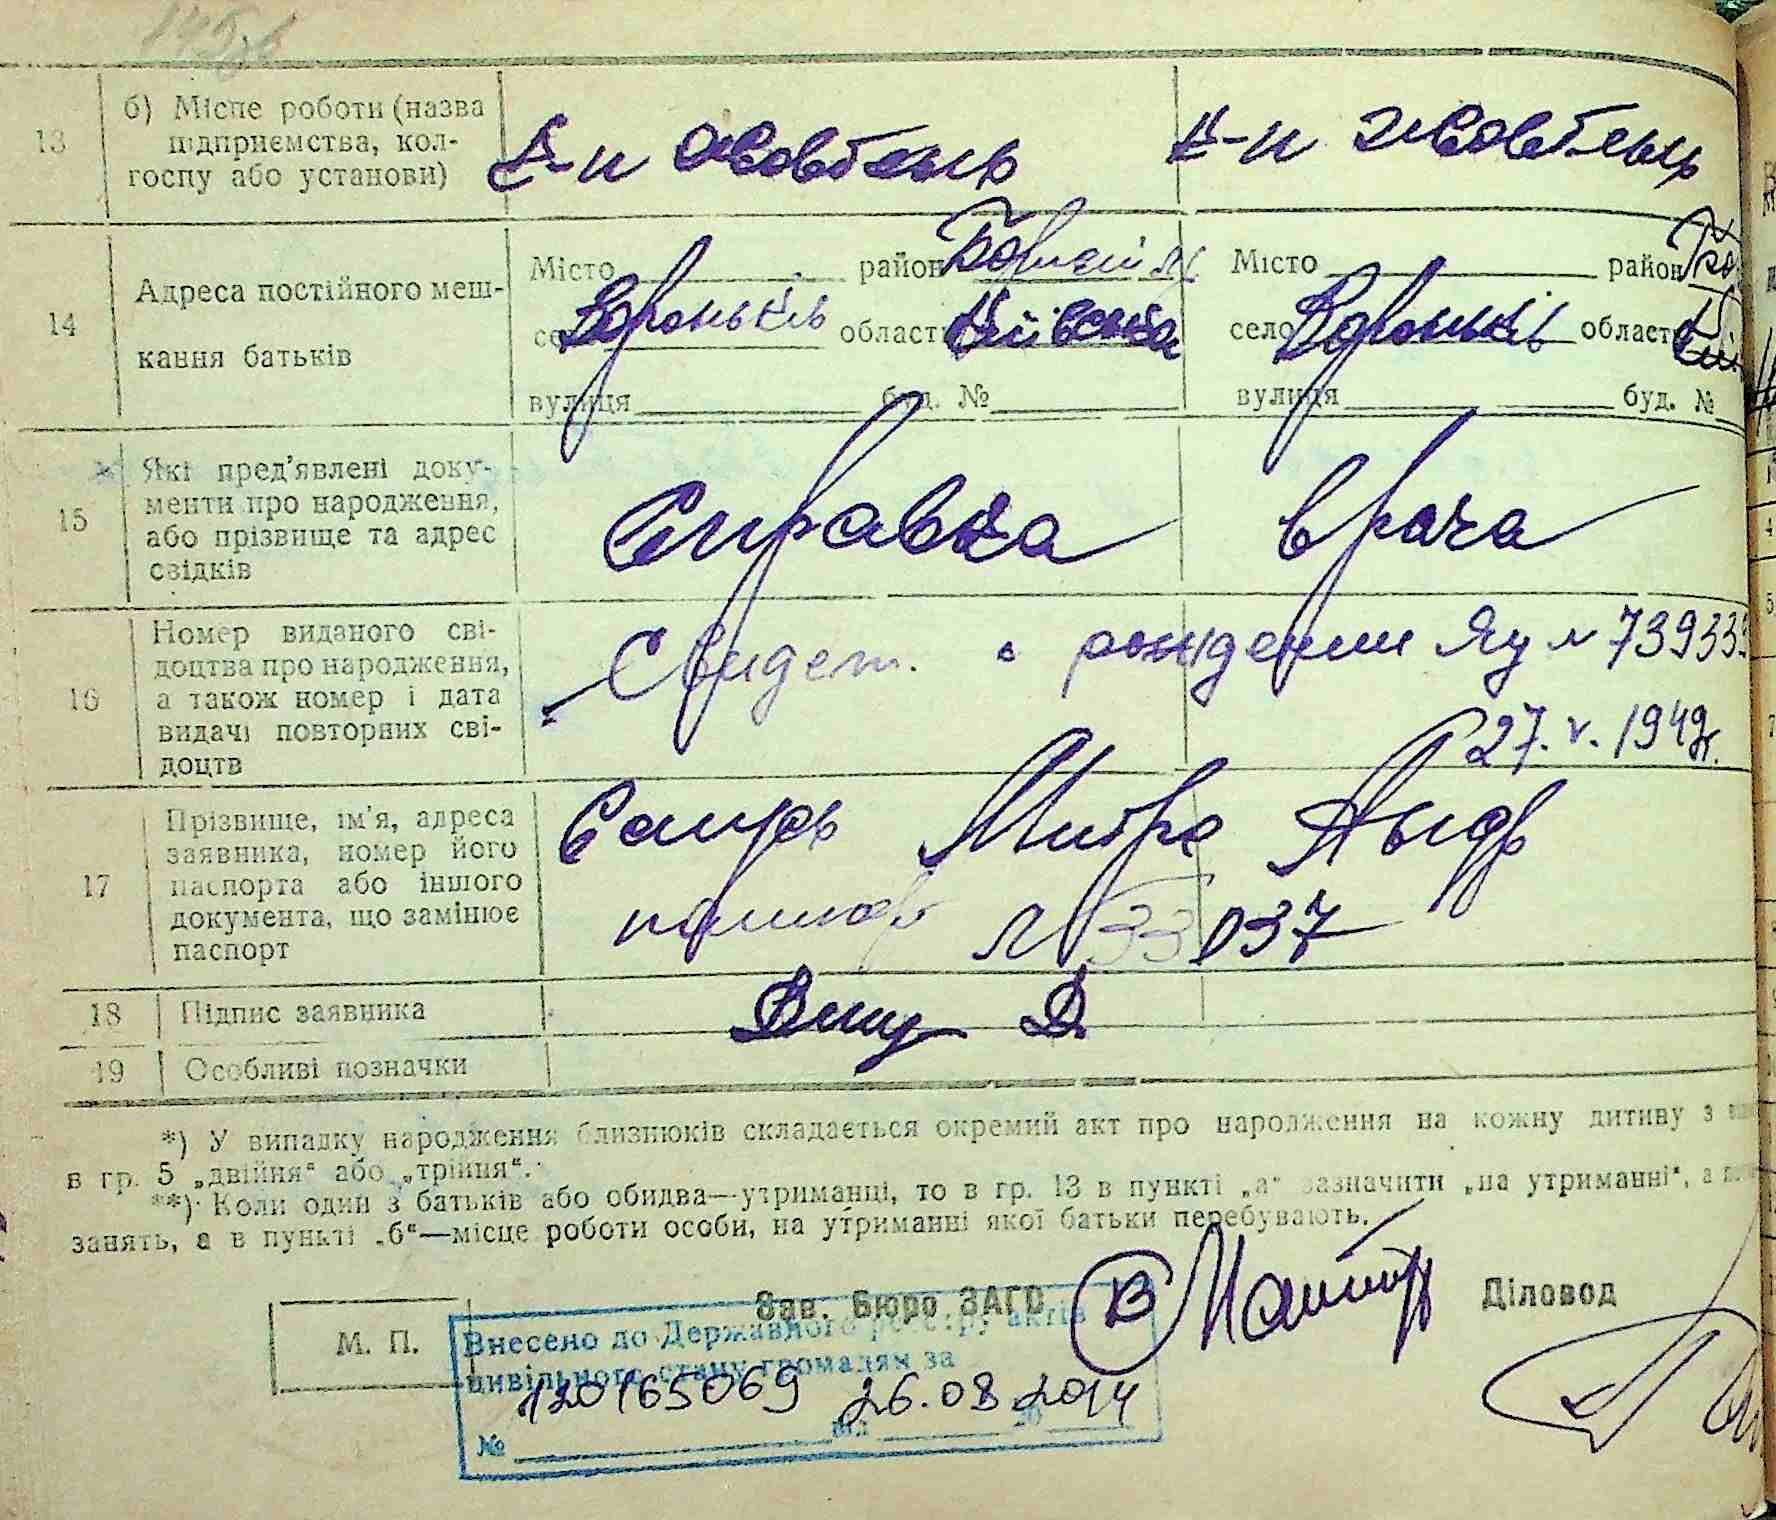 13
б) Місце роботи (назва
підприємства, кол-
госпу або установи)
К-п Жовтень
К-п Жовтень
14
Адреса постійного меш-
кання батьків
Місто район
село Вороньків область Київська
вулиця буд. №
Місто район
село Вороньків область
вулиця буд. №
15
Які пред'явлені доку-
менти про народження,
або прізвище та адрес
свідків
Справка врача
16
Номер виданого сві-
доцтва про народження,
а також номер і дата
видачі повторних сві-
доцтв
Свидет. о рождении Яу № 739333
27. V. 1949г.
17
Прізвище, ім'я, адреса
заявника, номер його
паспорта або іншого
документа, що замінює
паспорт
№ 33037
18
Підпис заявника
19
Особливі позначки
*) У випадку народження близнюків складається окремий акт про народження на кожну дитину з
в гр. 5 „двійня“ або „трійня“.
**) Коли один з батьків або обидва—утриманці, то в гр. 13 в пункті „а“ зазначити „на утриманні“, а
занять, а в пункті „б“—місце роботи особи, на утриманні якої батьки перебувають.
М. П.
Зав. Бюро ЗАГС
Діловод
Внесено до Державного реєстру актів
цивільного стану громадян за
№ 120165069 від 26.08.2014